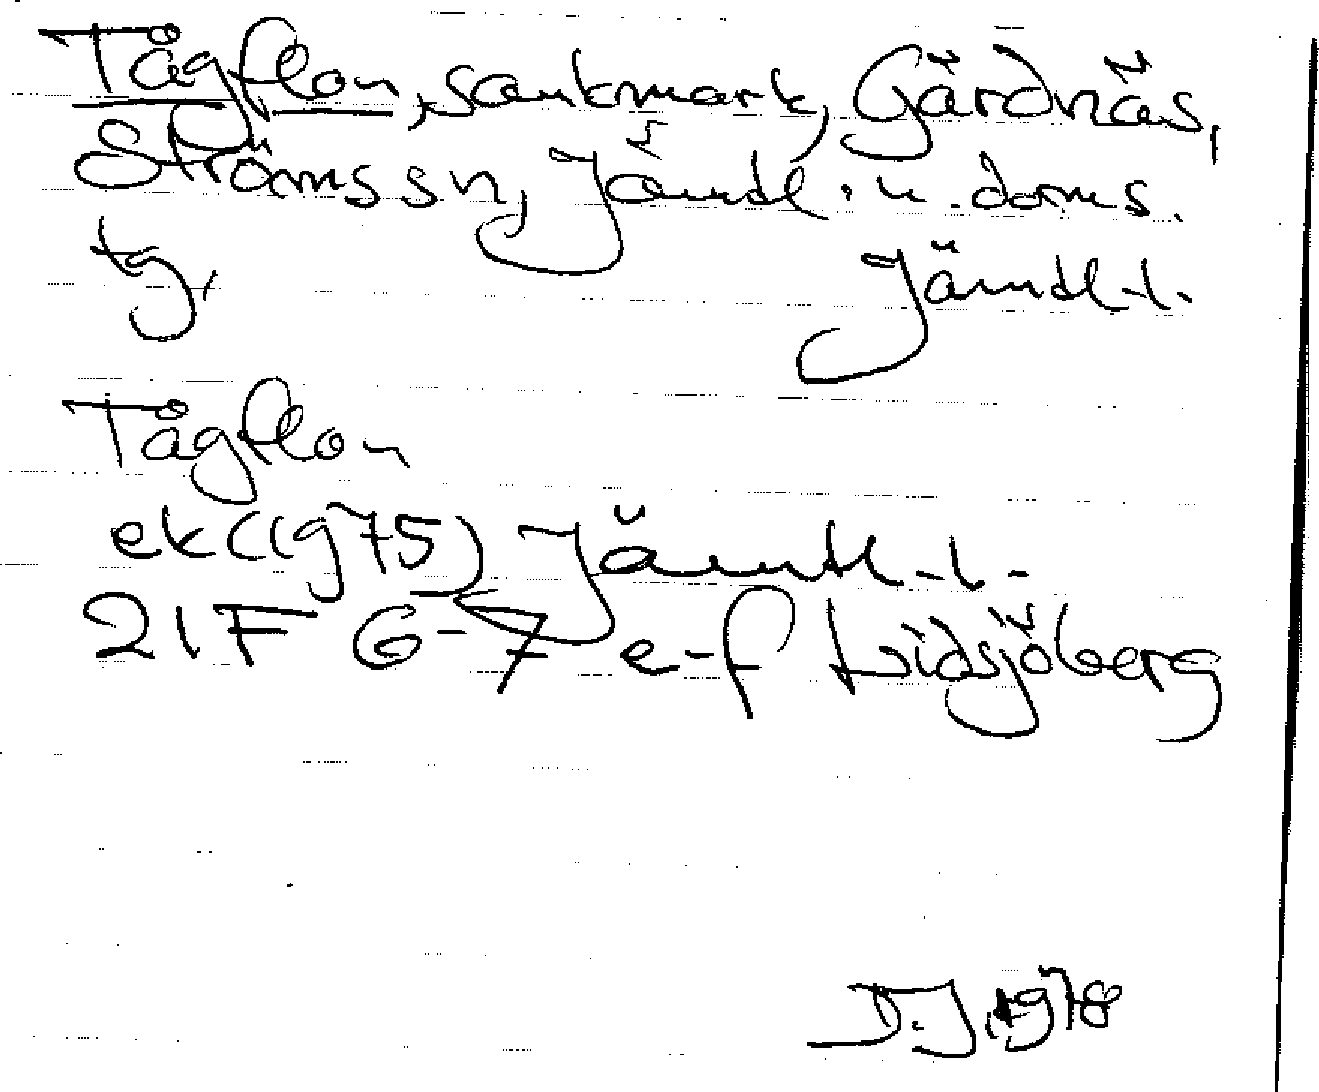 Tågflon, sankmark, Gärdnäs,
Ströms sn, Jämtl. n. doms.
tg, Jämtl. l.
Tågflon
ek (1975) Jämtl. l.
21F 6-7 e-f Lidsjöberg
D.J. 1978